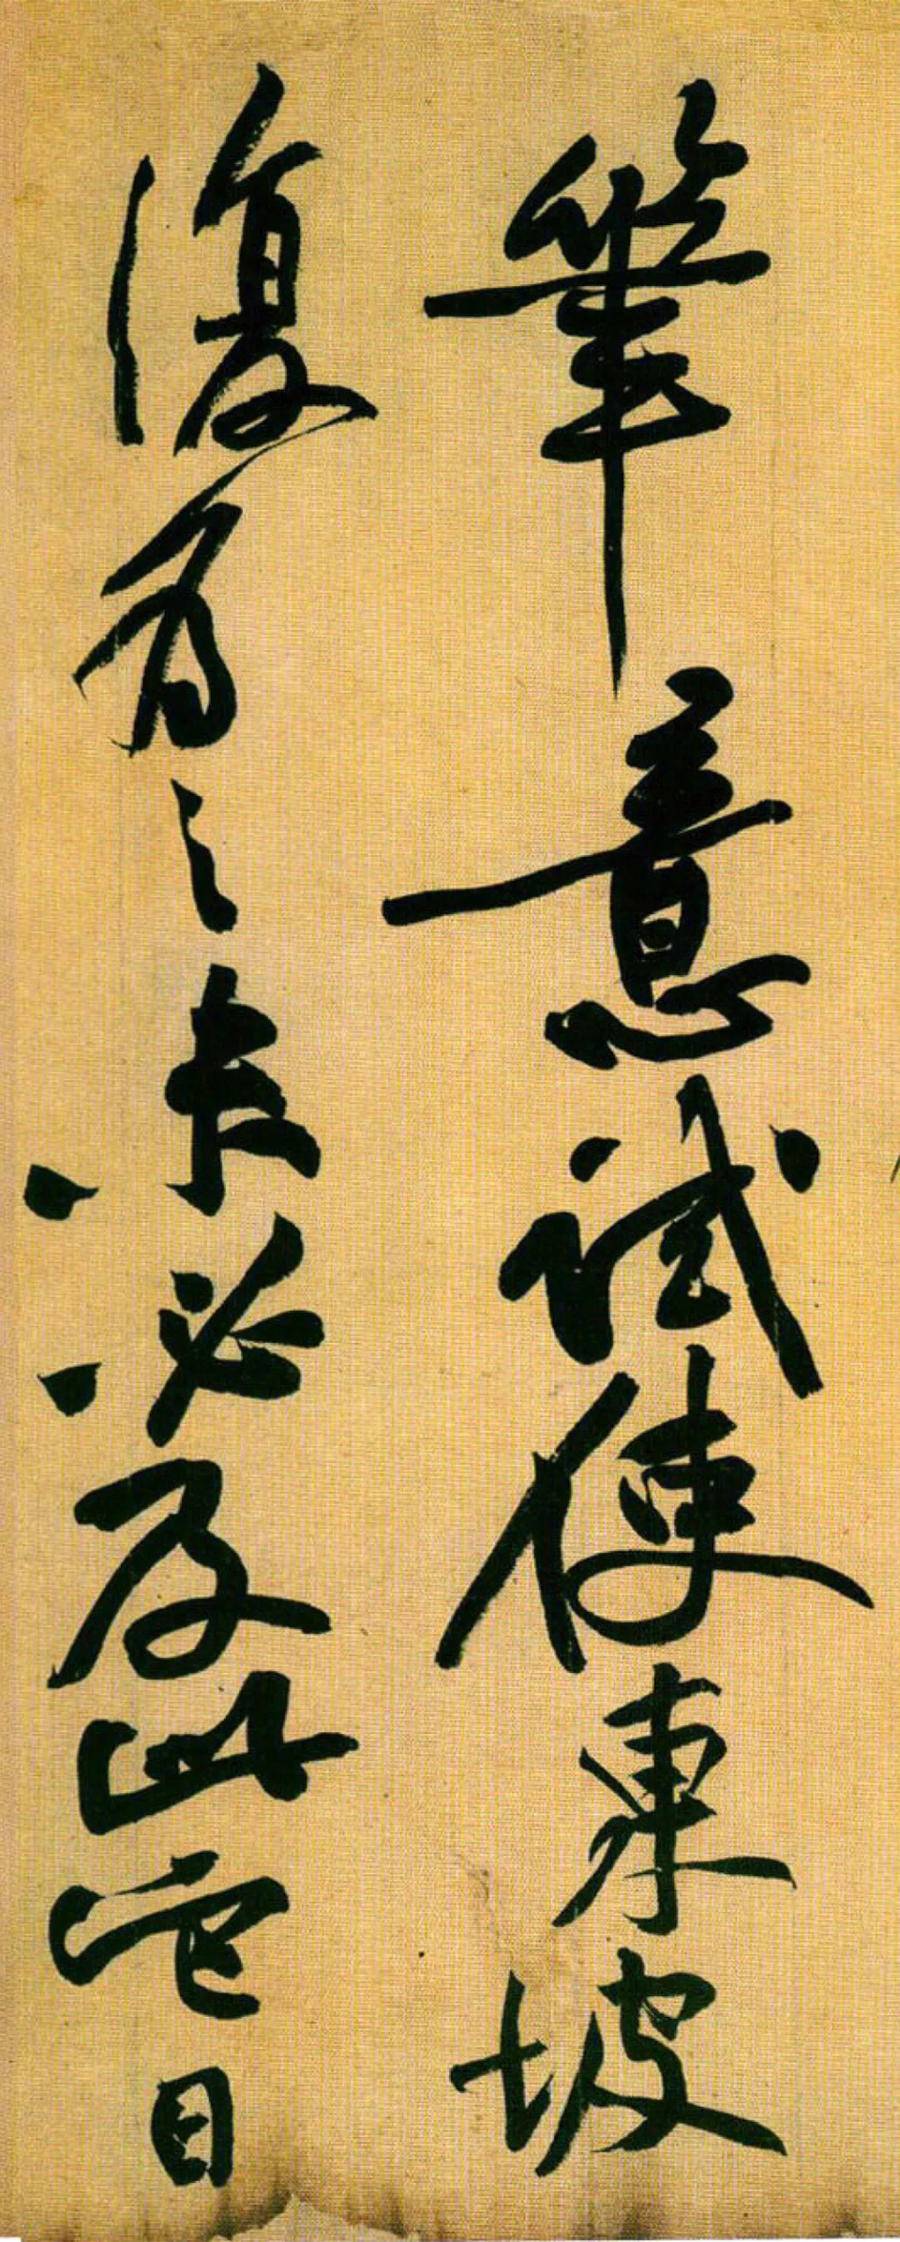 筆意試使東坡
復為之未必及此它日